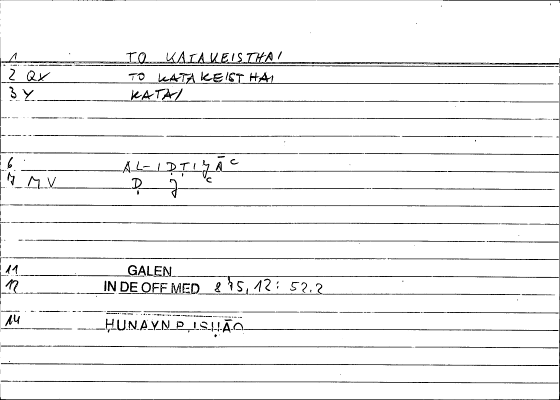 1 TO KATAKEISTHAI
2 QV TO KATAKEISTHAI
3 Y KATAI
6 AL-IḌṬIǦĀʿ
7 MV Ḍ Ǧ ʿ
11 GALEN
12 IN DE OFF MED 12: 52.2
14 ḤUNAYN B. ISḤĀQ